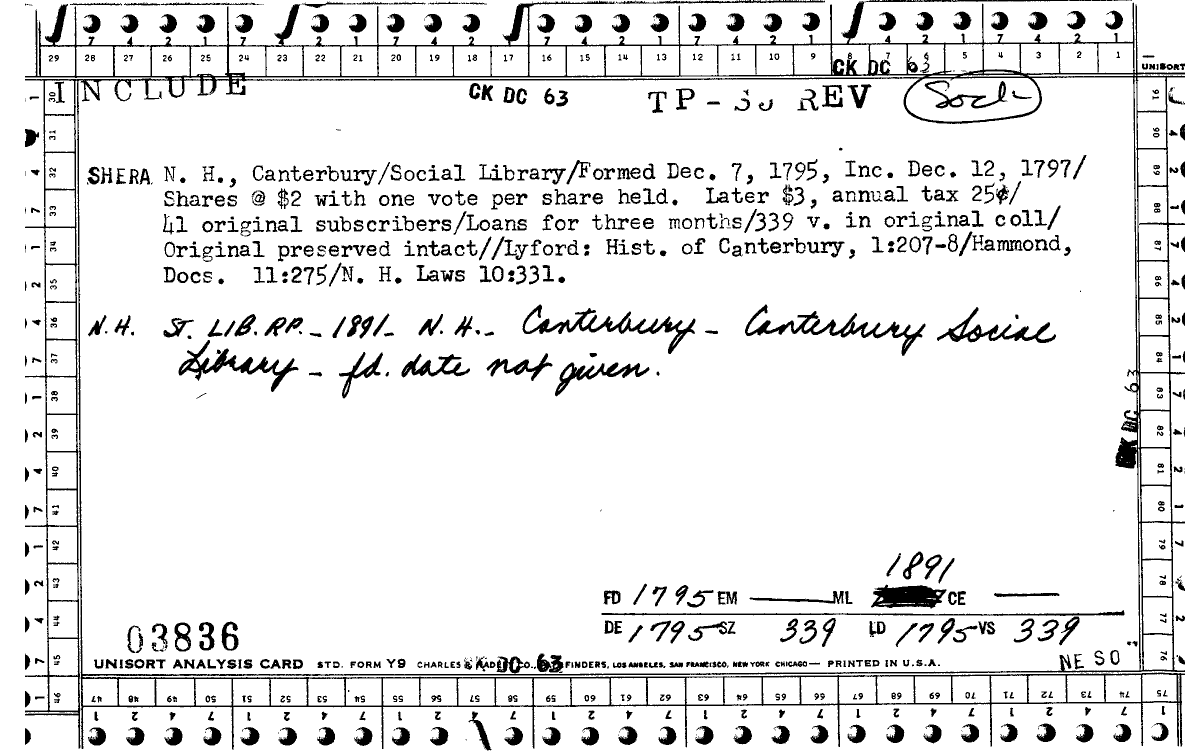 7 4 2 1 7 4 2 1 7 4 2 1 7 4 2 1 7 4 2 1 7 4 2 1
29 28 27 26 25 24 23 22 21 20 19 18 17 16 15 14 13 12 11 10 9 8 7 6 5 4 3 2 1
CK DC 63
UNISORT
INCLUDE CK DC 63 TP - REV Socl
SHERA N. H., Canterbury/Social Library/Formed Dec. 7, 1795, Inc. Dec. 12, 1797/
Shares @ $2 with one vote per share held. Later $3, annual tax 25¢/
41 original subscribers/Loans for three months/339 v. in original coll/
Original preserved intact//Lyford: Hist. of Canterbury, 1:207-8/Hammond,
Docs. 11:275/N. H. Laws 10:331.
N.H. ST. LIB. RP. - 1891 - N. H. - Canterbury - Canterbury Social
Library - fd. date not given.
DC 63
1891
FD 1795 EM ML CE
DE 1795 SZ 339 LD 1795 VS 339
03836
NE SO
UNISORT ANALYSIS CARD STD. FORM Y9 CHARLES R. HADLEY CO., DC 63 FINDERS, LOS ANGELES, SAN FRANCISCO, NEW YORK CHICAGO — PRINTED IN U.S.A.
46 47 48 49 50 51 52 53 54 55 56 57 58 59 60 61 62 63 64 65 66 67 68 69 70 71 72 73 74 75
1 2 4 7 1 2 4 7 1 2 4 7 1 2 4 7 1 2 4 7 1 2 4 7 1 2 4 7 1